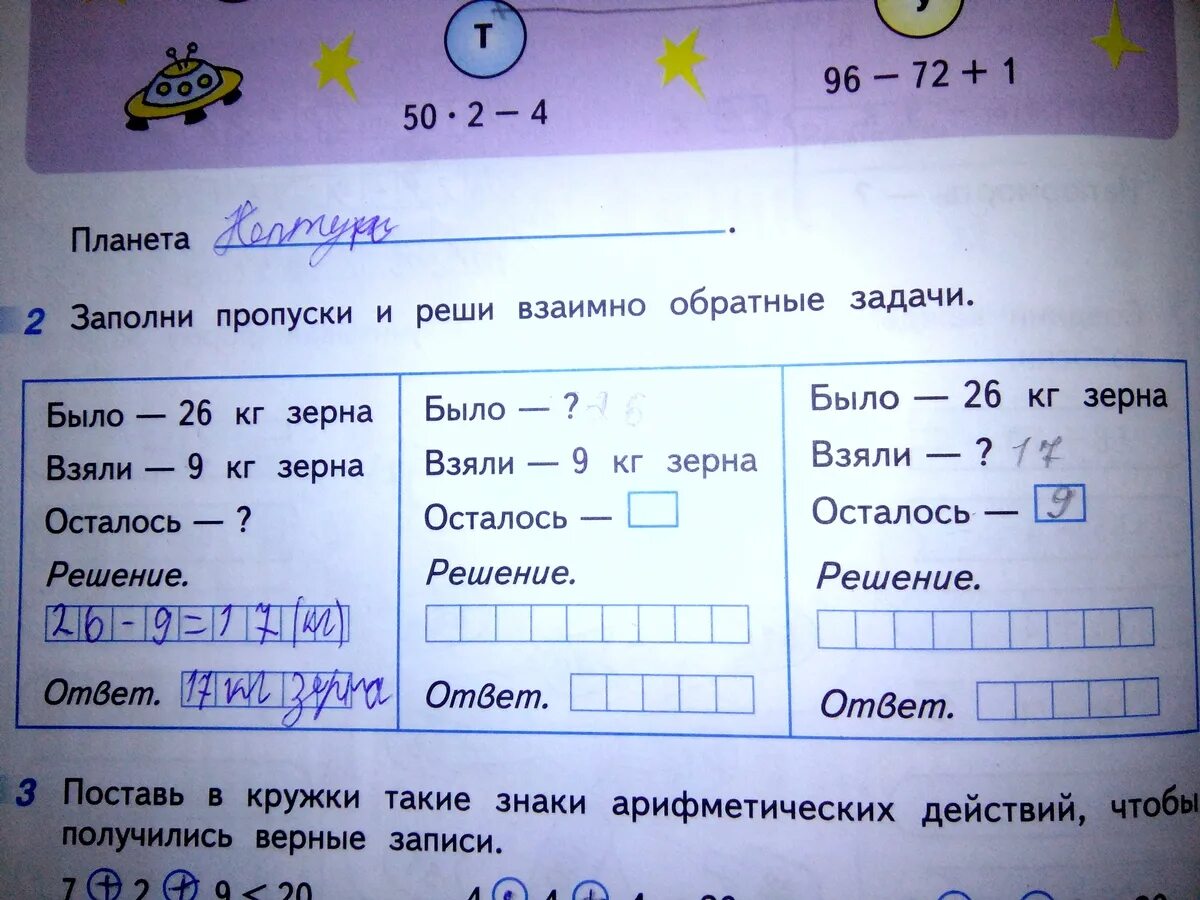 Т
У
50 · 2 − 4
96 − 72 + 1
Планета Нептун.
2 Заполни пропуски и реши взаимно обратные задачи.
Было — 26 кг зерна
Взяли — 9 кг зерна
Осталось — ?
Решение.
26-9=17(кг)
Ответ. 17 кг зерна
Было — ? 26
Взяли — 9 кг зерна
Осталось —
Решение.
Ответ.
Было — 26 кг зерна
Взяли — ? 17
Осталось — 9
Решение.
Ответ.
3 Поставь в кружки такие знаки арифметических действий, чтобы
получились верные записи.
7 + 2 + 9 < 20